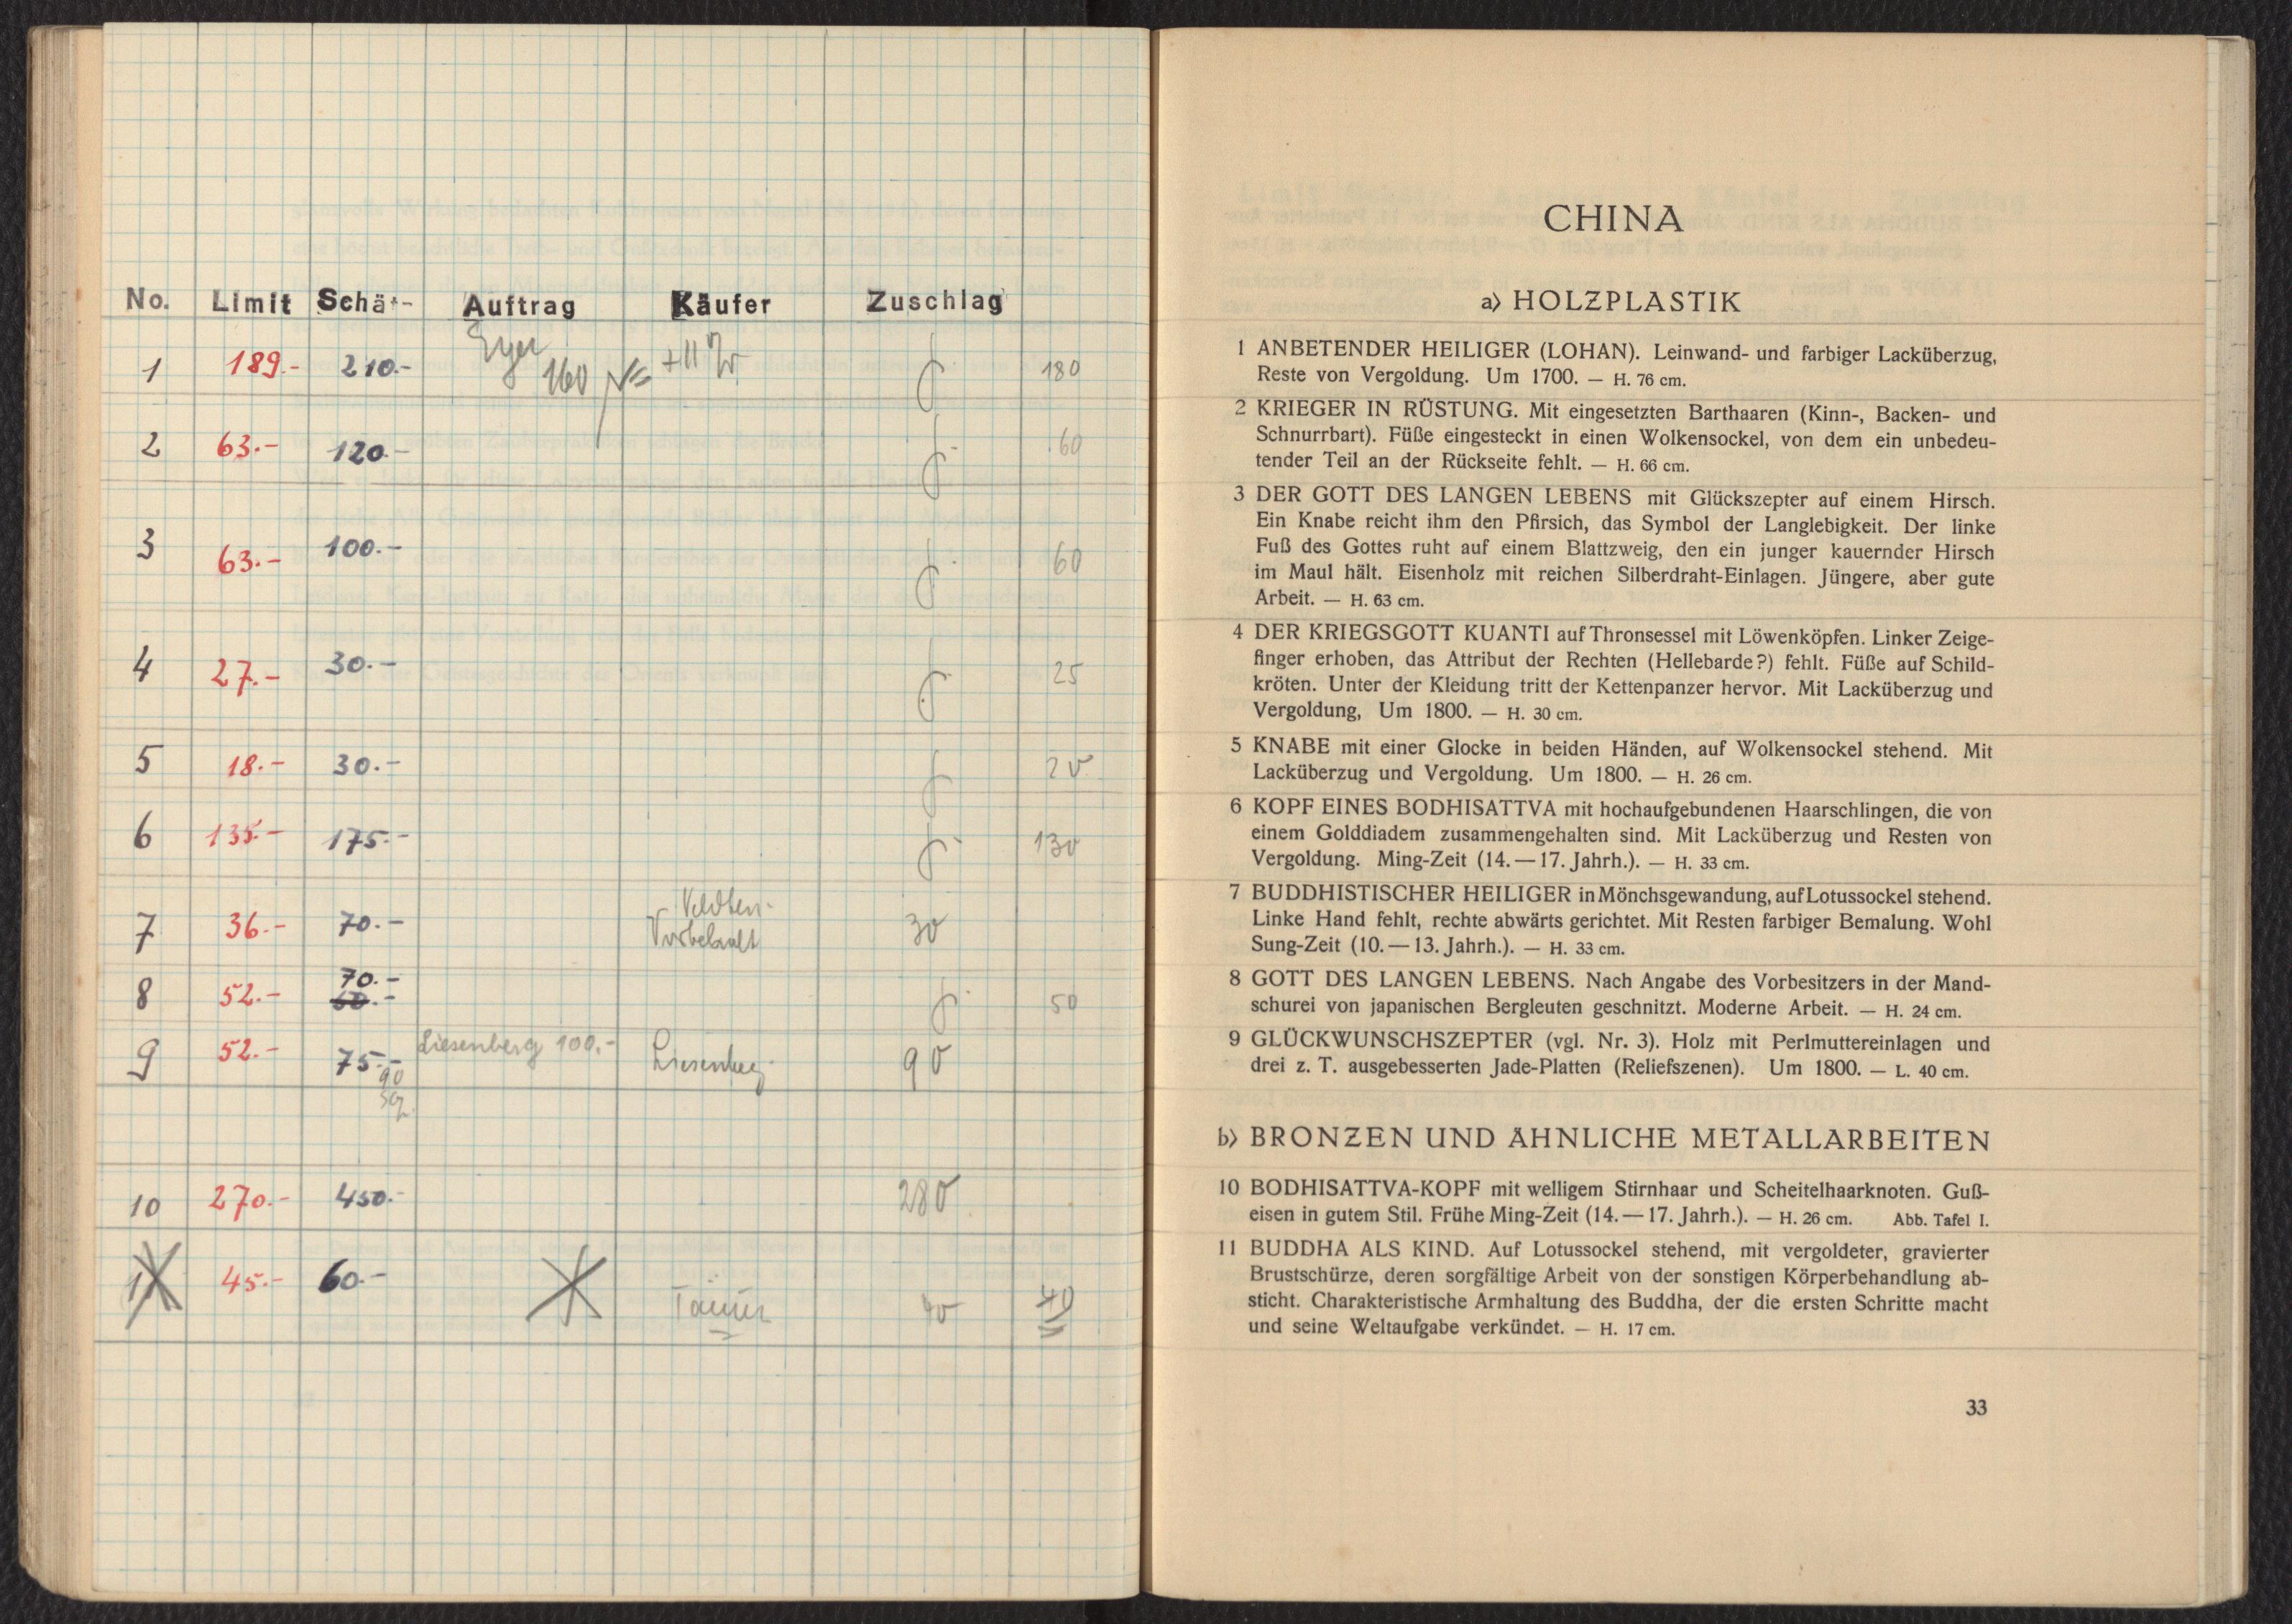 No. Limit Schä- Auftrag Käufer Zuschlag
1 189.- 210.- 160 180
2 63.- 120.- 60
3 63.- 100.- 60
4 27.- 30.- 25
5 18.- 30.- 20
6 135.- 175.- 130
7 36.- 70.- Vorbehalt 30
8 52.- 70.- 50
9 52.- 75.- Liesenberg 100.- Liesenberg 90
90
10 270.- 450.- 280
11 45.- 60.- 40
CHINA
a) HOLZPLASTIK
1 ANBETENDER HEILIGER (LOHAN). Leinwand- und farbiger Lacküberzug,
Reste von Vergoldung. Um 1700. — H. 76 cm.
2 KRIEGER IN RÜSTUNG. Mit eingesetzten Barthaaren (Kinn-, Backen- und
Schnurrbart). Füße eingesteckt in einen Wolkensockel, von dem ein unbedeu-
tender Teil an der Rückseite fehlt. — H. 66 cm.
3 DER GOTT DES LANGEN LEBENS mit Glückszepter auf einem Hirsch.
Ein Knabe reicht ihm den Pfirsich, das Symbol der Langlebigkeit. Der linke
Fuß des Gottes ruht auf einem Blattzweig, den ein junger kauernder Hirsch
im Maul hält. Eisenholz mit reichen Silberdraht-Einlagen. Jüngere, aber gute
Arbeit. — H. 63 cm.
4 DER KRIEGSGOTT KUANTI auf Thronsessel mit Löwenköpfen. Linker Zeige-
finger erhoben, das Attribut der Rechten (Hellebarde?) fehlt. Füße auf Schild-
kröten. Unter der Kleidung tritt der Kettenpanzer hervor. Mit Lacküberzug und
Vergoldung, Um 1800. — H. 30 cm.
5 KNABE mit einer Glocke in beiden Händen, auf Wolkensockel stehend. Mit
Lacküberzug und Vergoldung. Um 1800. — H. 26 cm.
6 KOPF EINES BODHISATTVA mit hochaufgebundenen Haarschlingen, die von
einem Golddiadem zusammengehalten sind. Mit Lacküberzug und Resten von
Vergoldung. Ming-Zeit (14.—17. Jahrh.). — H. 33 cm.
7 BUDDHISTISCHER HEILIGER in Mönchsgewandung, auf Lotussockel stehend.
Linke Hand fehlt, rechte abwärts gerichtet. Mit Resten farbiger Bemalung. Wohl
Sung-Zeit (10.—13. Jahrh.). — H. 33 cm.
8 GOTT DES LANGEN LEBENS. Nach Angabe des Vorbesitzers in der Mand-
schurei von japanischen Bergleuten geschnitzt. Moderne Arbeit. — H. 24 cm.
9 GLÜCKWUNSCHSZEPTER (vgl. Nr. 3). Holz mit Perlmuttereinlagen und
drei z. T. ausgebesserten Jade-Platten (Reliefszenen). Um 1800. — L. 40 cm.
b) BRONZEN UND ÄHNLICHE METALLARBEITEN
10 BODHISATTVA-KOPF mit welligem Stirnhaar und Scheitelhaarknoten. Guß-
eisen in gutem Stil. Frühe Ming-Zeit (14.—17. Jahrh.). — H. 26 cm. Abb. Tafel I.
11 BUDDHA ALS KIND. Auf Lotussockel stehend, mit vergoldeter, gravierter
Brustschürze, deren sorgfältige Arbeit von der sonstigen Körperbehandlung ab-
sticht. Charakteristische Armhaltung des Buddha, der die ersten Schritte macht
und seine Weltaufgabe verkündet. — H. 17 cm.
33